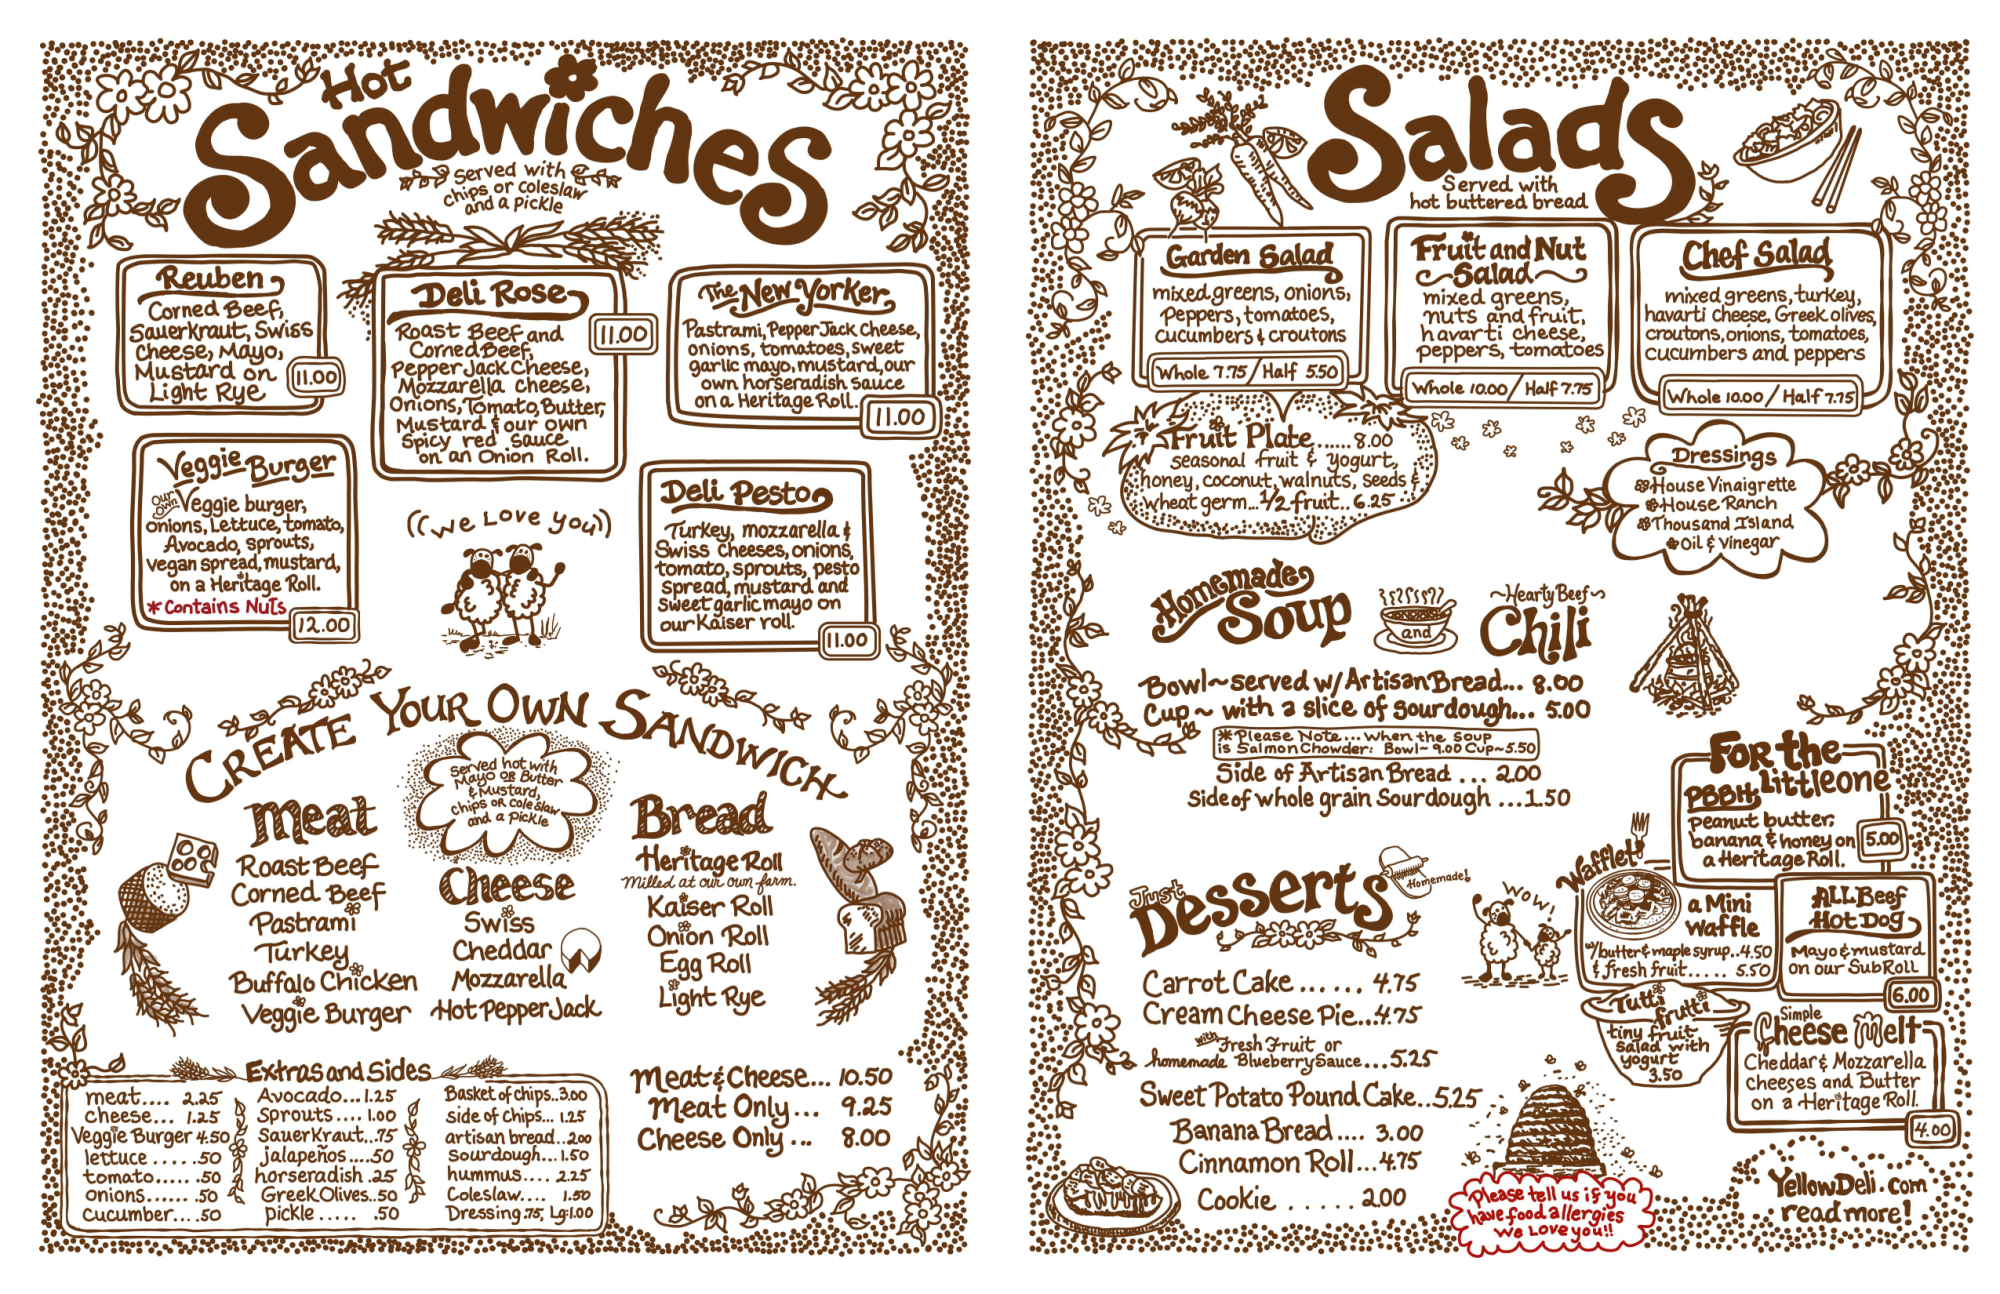 Hot
Sandwiches
Served with
chips or coleslaw
and a pickle
Reuben
Corned Beef,
Sauerkraut, Swiss
Cheese, Mayo,
Mustard on
Light Rye
11.00
Deli Rose
Roast Beef and
Corned Beef,
Pepper Jack Cheese,
Mozzarella cheese,
Onions, Tomato, Butter,
Mustard & our own
Spicy red sauce
on an Onion Roll.
11.00
The New Yorker
Pastrami, Pepper Jack Cheese,
onions, tomatoes, sweet
garlic mayo, mustard, our
own horseradish sauce
on a Heritage Roll.
11.00
Veggie Burger
Our Own Veggie burger,
onions, Lettuce, tomato,
Avocado, sprouts,
vegan spread, mustard,
on a Heritage Roll.
*Contains Nuts
12.00
((We Love you))
Deli Pesto
Turkey, mozzarella &
Swiss Cheeses, onions,
tomato, sprouts, pesto
Spread, mustard and
Sweet garlic mayo on
our Kaiser roll.
11.00
Create Your Own Sandwich
Served hot with
Mayo or Butter
& Mustard,
chips or coleslaw
and a pickle
Meat
Roast Beef
Corned Beef
Pastrami
Turkey
Buffalo Chicken
Veggie Burger
Cheese
Swiss
Cheddar
Mozzarella
Hot Pepper Jack
Bread
Heritage Roll
Milled at our own farm.
Kaiser Roll
Onion Roll
Egg Roll
Light Rye
Extras and Sides
meat.... 2.25
cheese... 1.25
Veggie Burger 4.50
lettuce ..... .50
tomato...... .50
onions...... .50
cucumber... .50
Avocado... 1.25
Sprouts.... 1.00
Sauerkraut... .75
jalapeños.... .50
horseradish .25
Greek Olives.. .50
pickle ..... .50
Basket of chips.. 3.00
side of chips... 1.25
artisan bread.. 2.00
sourdough... 1.50
hummus.... 2.25
Coleslaw.... 1.50
Dressing .75, Lg: 1.00
Meat & Cheese... 10.50
Meat Only... 9.25
Cheese Only ... 8.00
Salads
Served with
hot buttered bread
Garden Salad
mixed greens, onions,
Peppers, tomatoes,
cucumbers & croutons
Whole 7.75 / Half 5.50
Fruit and Nut
Salad
mixed greens,
nuts and fruit,
havarti cheese,
peppers, tomatoes
Whole 10.00 / Half 7.75
Chef Salad
mixed greens, turkey,
havarti cheese, Greek olives,
croutons, onions, tomatoes,
cucumbers and peppers
Whole 10.00 / Half 7.75
Fruit Plate...... 8.00
seasonal fruit & yogurt,
honey, coconut, walnuts, seeds &
wheat germ... 1/2 fruit.. 6.25
Dressings
House Vinaigrette
House Ranch
Thousand Island
Oil & Vinegar
Homemade
Soup
and
~Hearty Beef~
Chili
Bowl~served w/ Artisan Bread... 8.00
Cup ~ with a slice of sourdough... 5.00
*Please Note... when the soup
is Salmon Chowder: Bowl~ 9.00 Cup~5.50
Side of Artisan Bread ... 2.00
Side of whole grain Sourdough ...1.50
Just
Desserts
Homemade!
Carrot Cake ...... 4.75
Cream Cheese Pie...4.75
with Fresh Fruit or
homemade Blueberry Sauce...5.25
Sweet Potato Pound Cake..5.25
Banana Bread .... 3.00
Cinnamon Roll...4.75
Cookie ..... 2.00
For the
Little one
PBBH
Peanut butter,
banana & honey on
a Heritage Roll.
5.00
Wow!
Wafflet
a Mini
waffle
w/butter & maple syrup..4.50
& fresh fruit..... 5.50
ALL Beef
Hot Dog
Mayo & mustard
on our Sub Roll
6.00
Tutti
frutti
tiny fruit
salad with
yogurt
3.50
Simple
Cheese Melt
Cheddar & Mozzarella
cheeses and Butter
on a Heritage Roll.
4.00
Please tell us if you
have food allergies
We Love you!!
YellowDeli.com
read more!